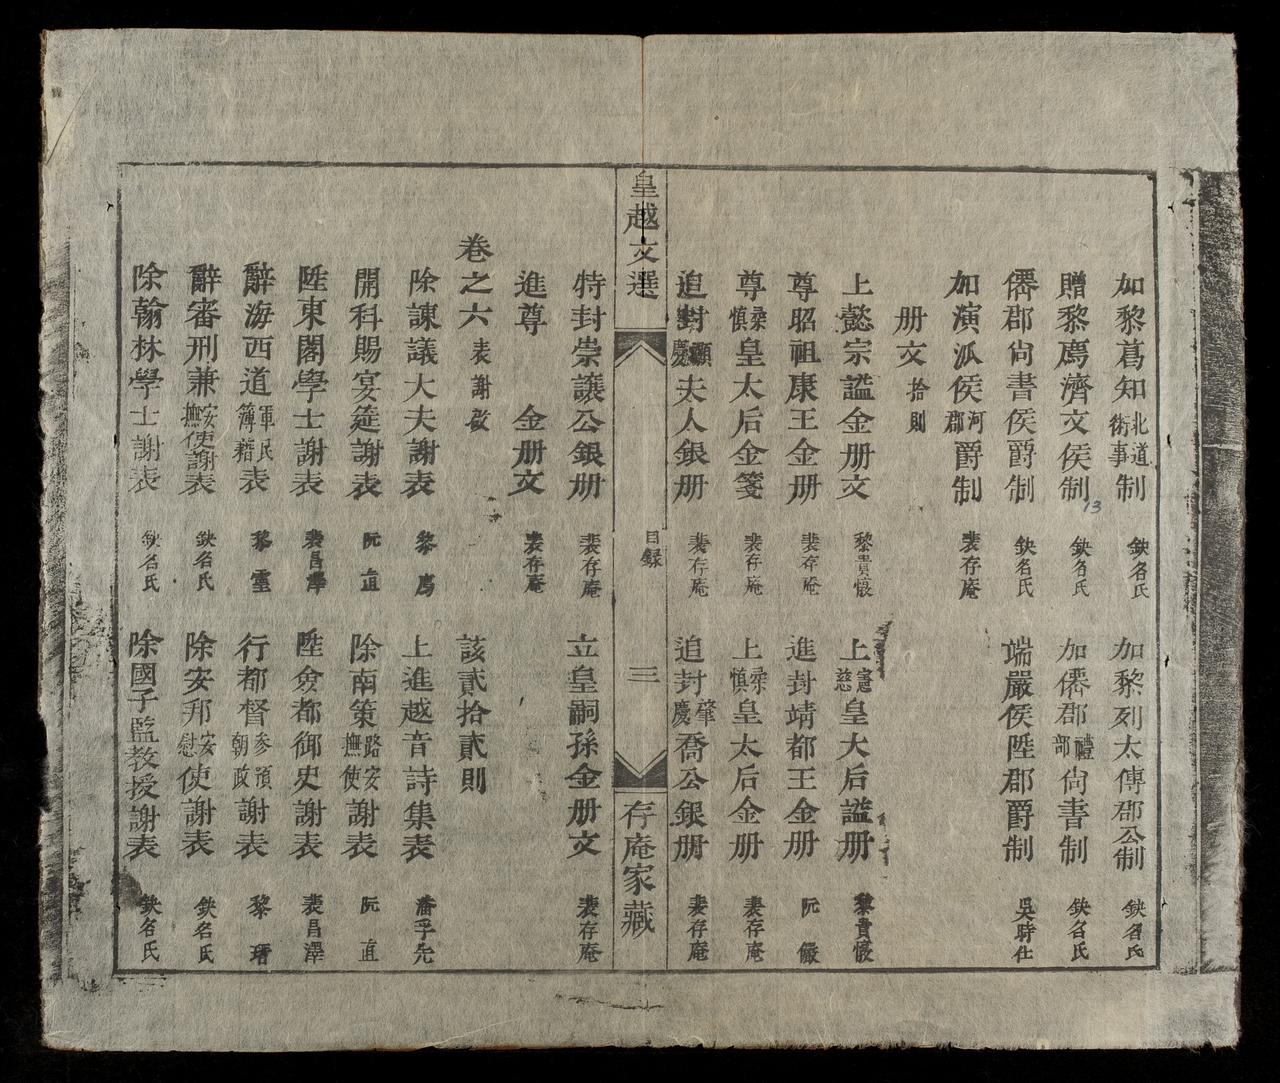 加黎蒍知北道衛事制 欽名氏 加黎列太傅郡公制 欽名氏
贈黎廌濟文侯制 欽名氏 加僊郡禮部尙書制 欽名氏
僊郡尙書侯爵制 欽名氏 端嚴侯陞郡爵制 吳時仕
加演派侯河郡爵制 裴存庵
册文拾則
上懿宗謚金册文 黎貴惇 上憲慈皇太后謚册 黎貴惇
尊昭祖康王金册 裴存庵 進封靖都王金册 阮儼
尊柔慎皇太后金箋 裴存庵 上柔慎皇太后金册 裴存庵
追封顯慶夫人銀册 裴存庵 追封肇慶喬公銀册 裴存庵
皇越文選 目録 三 存庵家藏
特封崇讓公銀册 裴存庵 立皇嗣孫金册文 裴存庵
進尊 金册文 裴存庵
卷之六表謝啟 該貳拾貳則
除諫議大夫謝表 黎廌 上進越音詩集表 潘孚先
開科賜宴筵謝表 阮直 除南策路安撫使謝表 阮直
陞東閣學士謝表 裴昌澤 陞僉都御史謝表 裴昌澤
辭海西道軍民簿籍表 黎靈 行都督參預朝政謝表 黎瑨
辭審刑兼安撫使謝表 欽名氏 除安邦安慰使謝表 欽名氏
除翰林學士謝表 欽名氏 除國子監敎授謝表 欽名氏
13